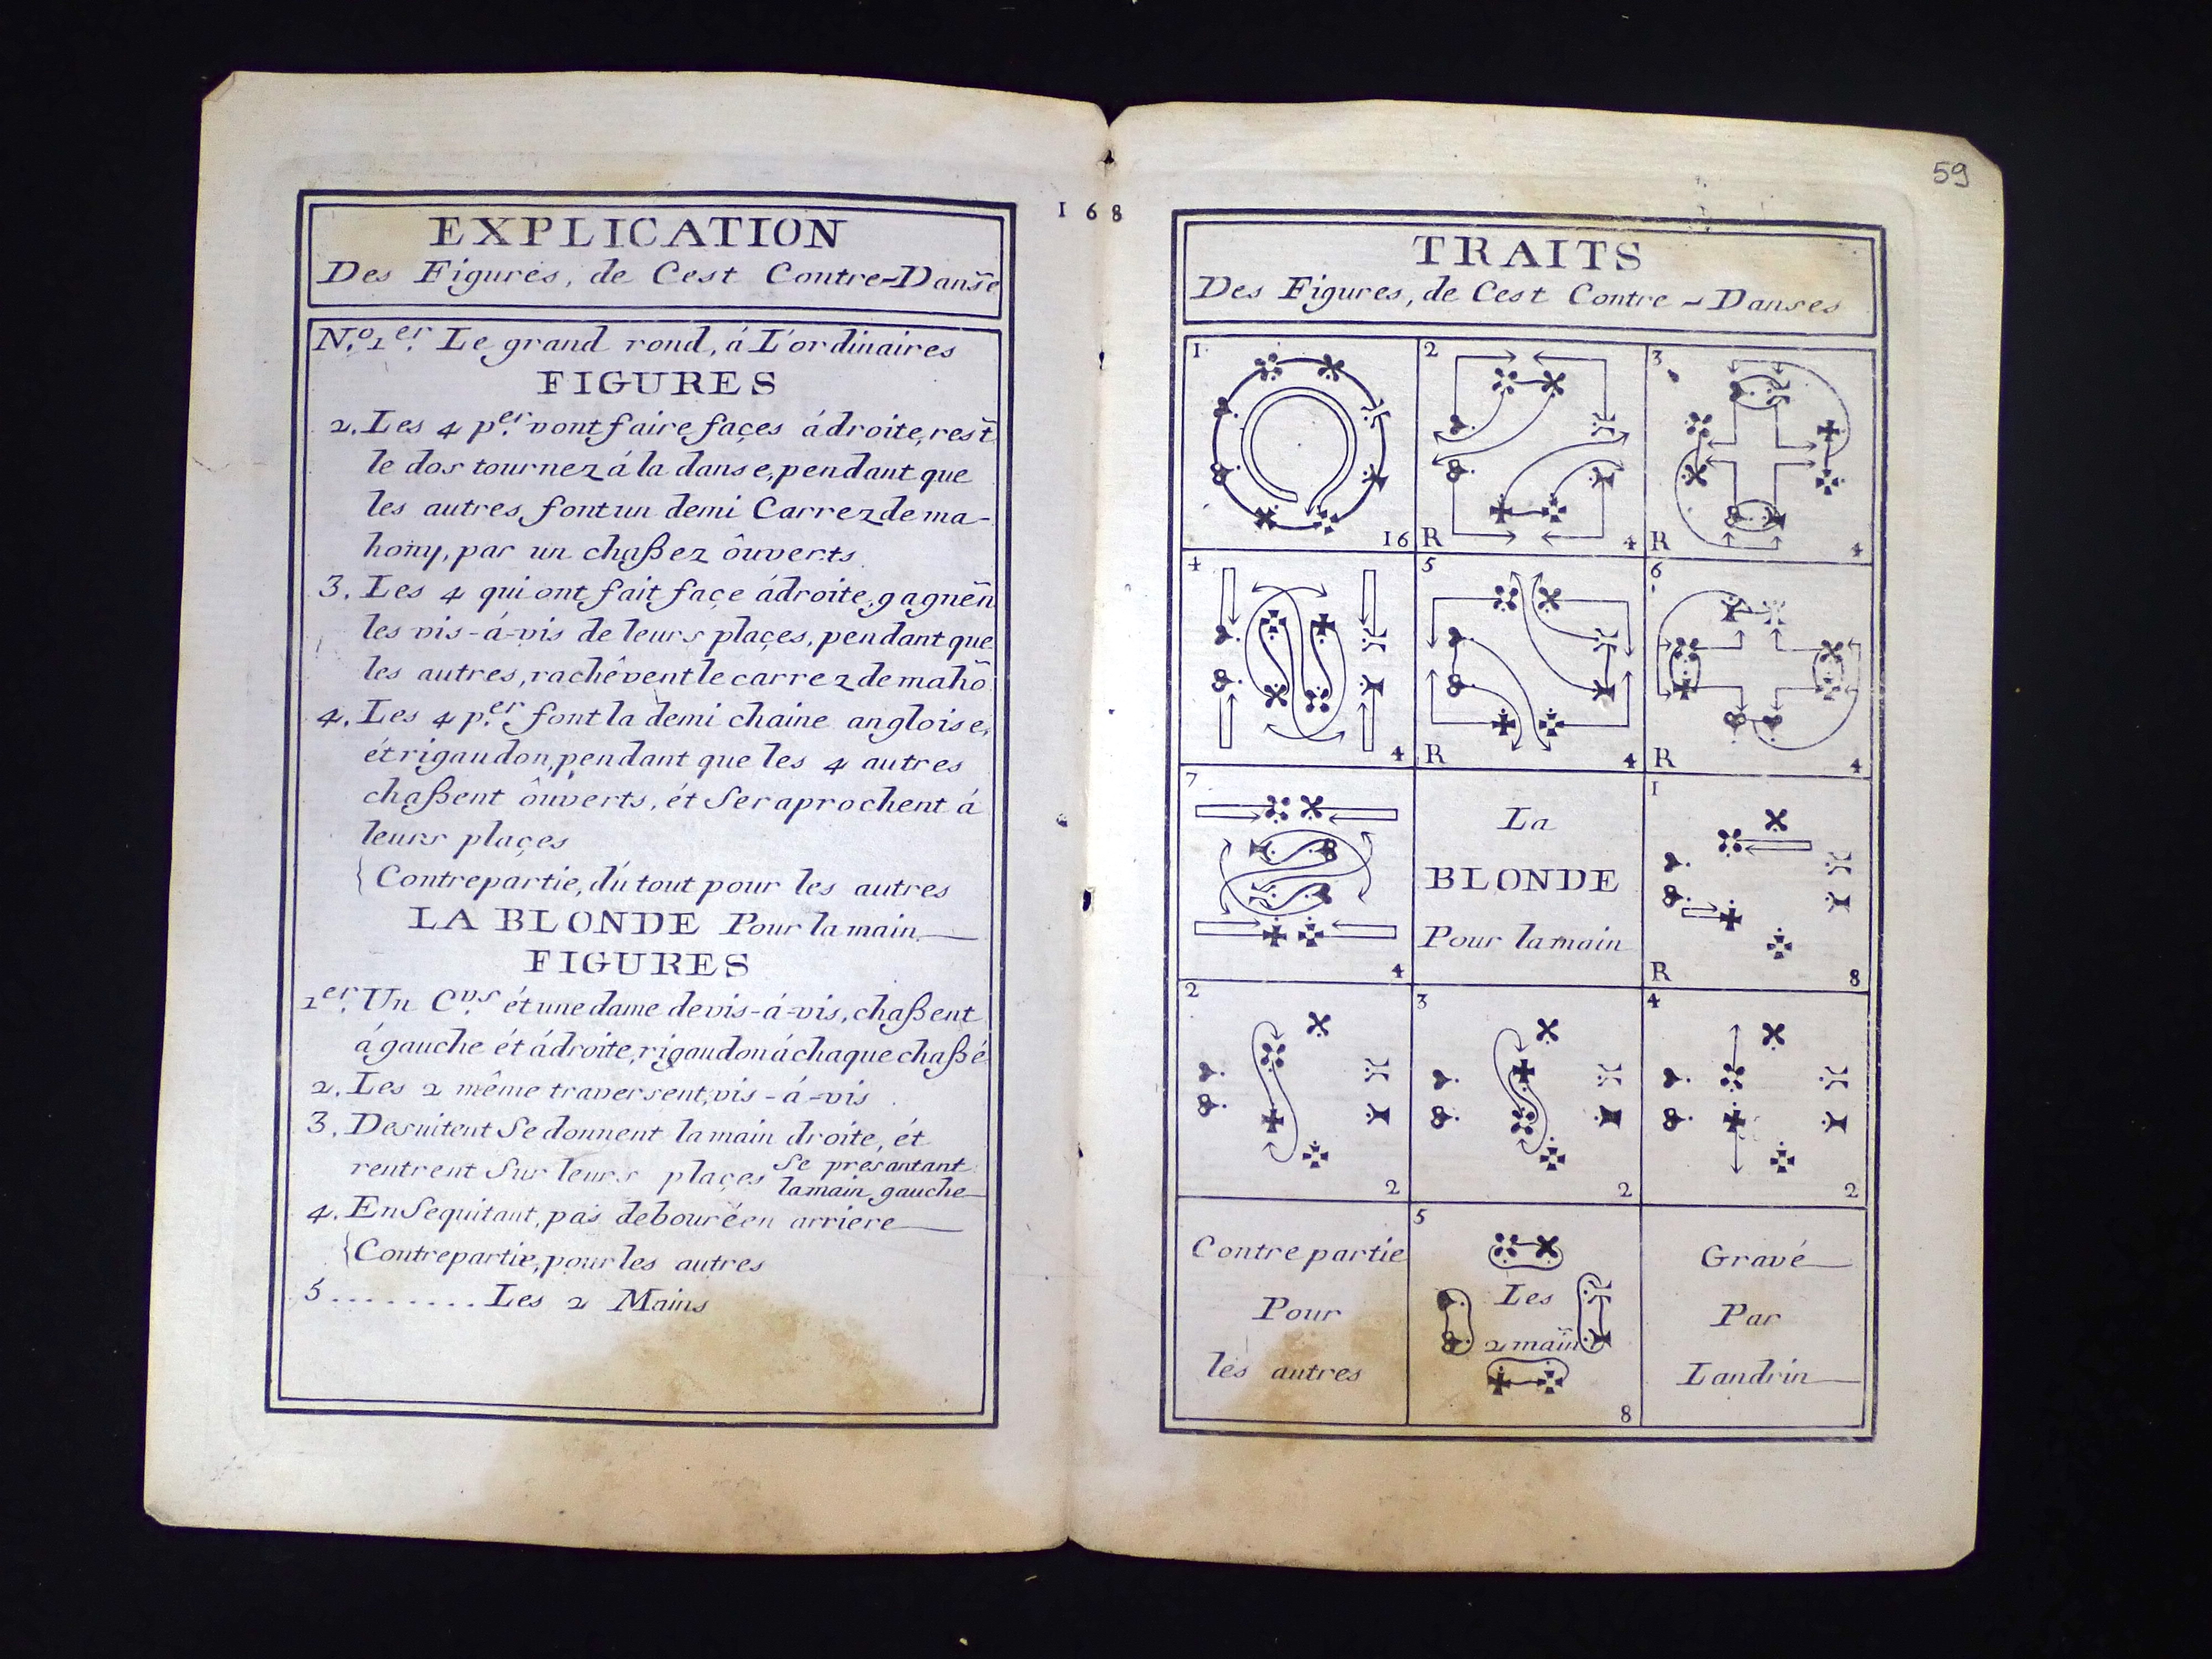 168
EXPLICATION
Des Figures, de Cest Contre-Danse
N.o 1er. Le grand rond, á L'ordinaires
FIGURES
2. Les 4 p.er vont faire façes ádroite, rest
le dos tournez á la danse, pendant que
les autres, font un demi Carrez de ma-
hony, par un chaßez ôuverts.
3. Les 4 qui ont fait façe ádroite, gagnen
les vis-á-vis de leurs plaçes, pendant que
les autres, rachêvent le carrez de maho
4. Les 4 p.er font la demi chaine angloise,
ét rigaudon, pendant que les 4 autres
chaßent ôuverts, ét Seraprochent á
leurs plaçes
{Contrepartie, dú tout pour les autres
LA BLONDE Pour la main
FIGURES
1er. Un C.vs ét une dame de vis-á-vis, chaßent
á gauche ét ádroite, rigaudon á chaque chaßé
2. Les 2 même traversent, vis-á-vis
3. Desuitent Se donnent la main droite, ét
rentrent Sur leurs plaçes Se présantant
la main gauche
4. En Sequitant, pas debourée en arriere
{Contrepartie, pour les autres
5........Les 2 Mains
59
TRAITS
Des Figures, de Cest Contre-Danses
1 2 3
16 R 4 R 4
4 5 6
4 R 4 R 4
7 1
La
BLONDE
Pour la main
4 R 8
2 3 4
2 2 2
5
Contrepartie
Pour
les autres
Les
2 main
8
Gravé
Par
Landrin